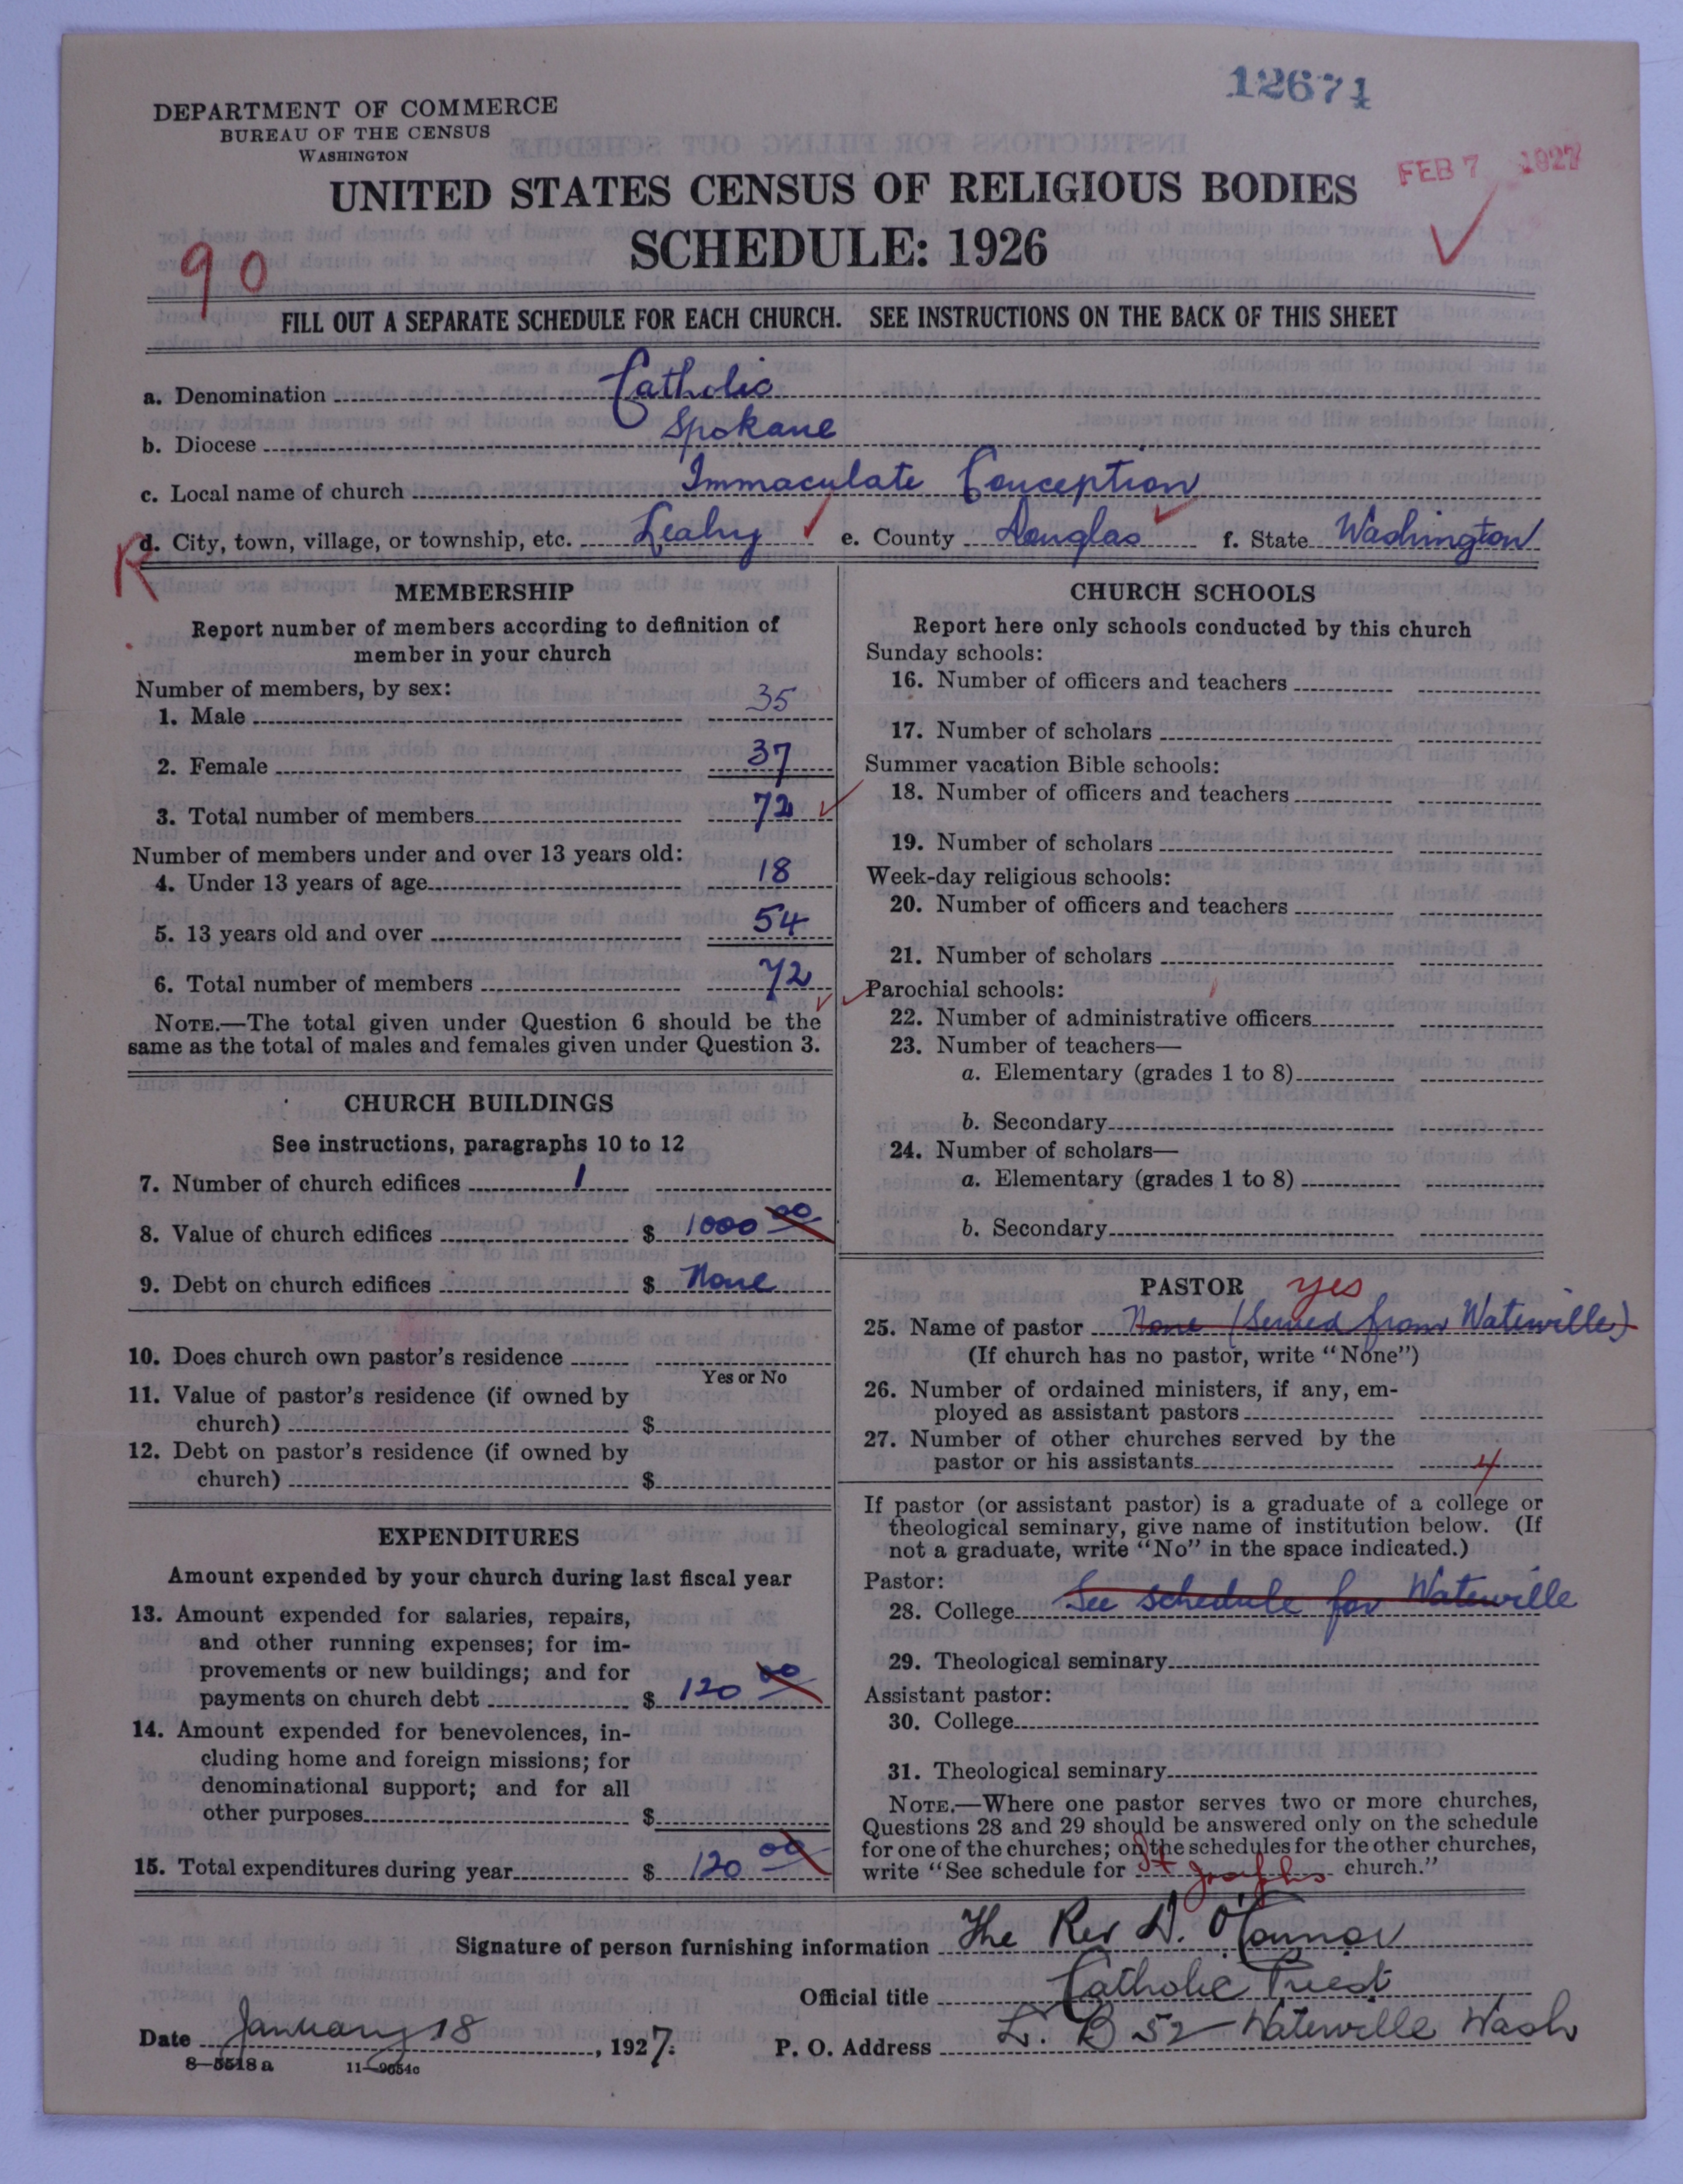 12671
DEPARTMENT OF COMMERCE
BUREAU OF THE CENSUS
WASHINGTON
FEB 7 1927
UNITED STATES CENSUS OF RELIGIOUS BODIES
SCHEDULE: 1926
90
FILL OUT A SEPARATE SCHEDULE FOR EACH CHURCH. SEE INSTRUCTIONS ON THE BACK OF THIS SHEET
a. Denomination Catholic
b. Diocese Spokane
c. Local name of church Immaculate Conception
R
d. City, town, village, or township, etc. Leahy e. County Douglas f. State Washington
MEMBERSHIP
Report number of members according to definition of
member in your church
Number of members, by sex:
1. Male 35
2. Female 37
3. Total number of members 72
Number of members under and over 13 years old:
4. Under 13 years of age 18
5. 13 years old and over 54
6. Total number of members 72
NOTE.—The total given under Question 6 should be the
same as the total of males and females given under Question 3.
CHURCH BUILDINGS
See instructions, paragraphs 10 to 12
7. Number of church edifices 1
8. Value of church edifices $ 1000 00
9. Debt on church edifices $ None
10. Does church own pastor's residence
Yes or No
11. Value of pastor's residence (if owned by
church) $
12. Debt on pastor's residence (if owned by
church) $
EXPENDITURES
Amount expended by your church during last fiscal year
13. Amount expended for salaries, repairs,
and other running expenses; for im-
provements or new buildings; and for
payments on church debt $ 120 00
14. Amount expended for benevolences, in-
cluding home and foreign missions; for
denominational support; and for all
other purposes $
15. Total expenditures during year $ 120 00
CHURCH SCHOOLS
Report here only schools conducted by this church
Sunday schools:
16. Number of officers and teachers
17. Number of scholars
Summer vacation Bible schools:
18. Number of officers and teachers
19. Number of scholars
Week-day religious schools:
20. Number of officers and teachers
21. Number of scholars
Parochial schools:
22. Number of administrative officers
23. Number of teachers—
a. Elementary (grades 1 to 8)
b. Secondary
24. Number of scholars—
a. Elementary (grades 1 to 8)
b. Secondary
PASTOR yes
25. Name of pastor None (Served from Waterville)
(If church has no pastor, write "None")
26. Number of ordained ministers, if any, em-
ployed as assistant pastors
27. Number of other churches served by the
pastor or his assistants 4
If pastor (or assistant pastor) is a graduate of a college or
theological seminary, give name of institution below. (If
not a graduate, write "No" in the space indicated.)
Pastor:
28. College See schedule for Waterville
29. Theological seminary
Assistant pastor:
30. College
31. Theological seminary
NOTE.—Where one pastor serves two or more churches,
Questions 28 and 29 should be answered only on the schedule
for one of the churches; on the schedules for the other churches,
write "See schedule for St Josephs church."
Signature of person furnishing information The Rev D. O'Connor
Official title Catholic Priest
Date January 18, 1927. P. O. Address L. B 52 Waterville Wash
8—5518 a 11—9654c